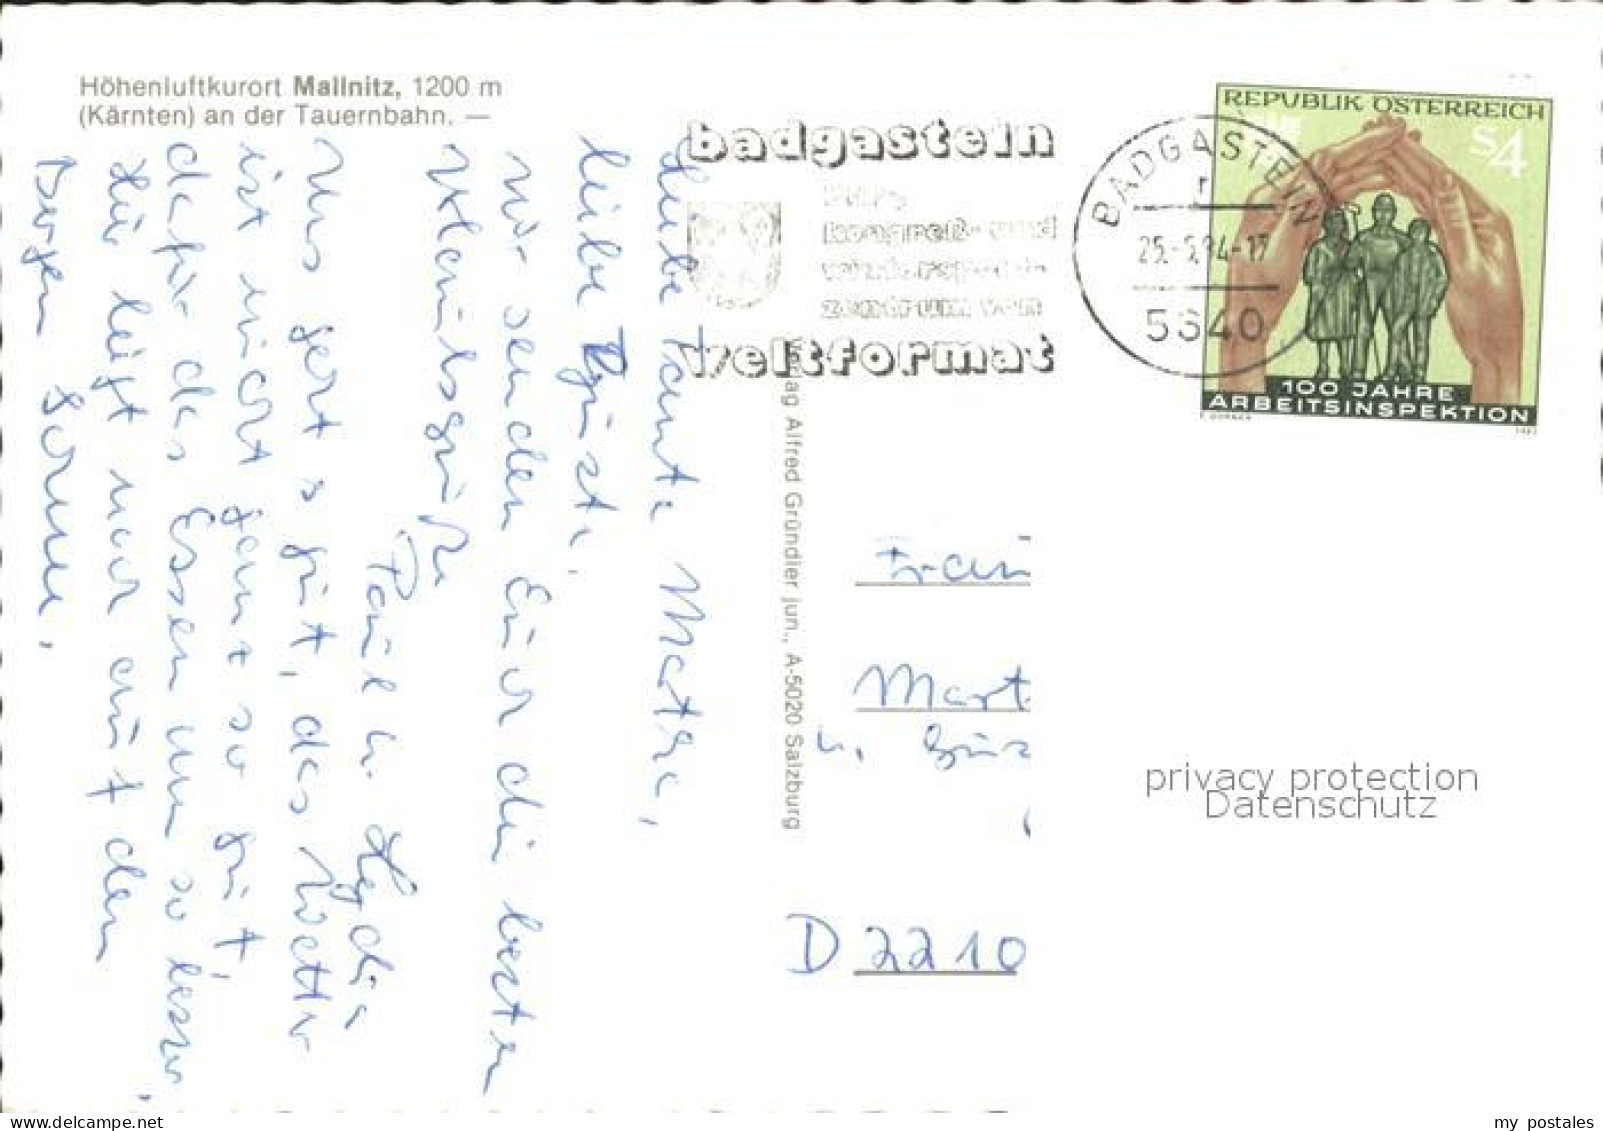 Höhenluftkurort Mallnitz, 1200 m
(Kärnten) an der Tauernbahn. —
badgastein
kongreß- und
zentrum von
weltformat
BADGASTEIN
r
25.-5.84-17
5640
REPUBLIK ÖSTERREICH
S4
100 JAHRE
ARBEITSINSPEKTION
Verlag Alfred Gründler jun., A-5020 Salzburg
Liebe Tante Martha,
liebe
wir senden Euch die besten
Urlaubsgrüße
Paul u. Hedja
Uns geht's gut, das Wetter
ist nicht ganz so gut,
dafür das Essen um so besser,
hier liegt noch auf den
Bergen Sonne.
Frau
Mart
u.
D 2210
privacy protection
Datenschutz
my postales